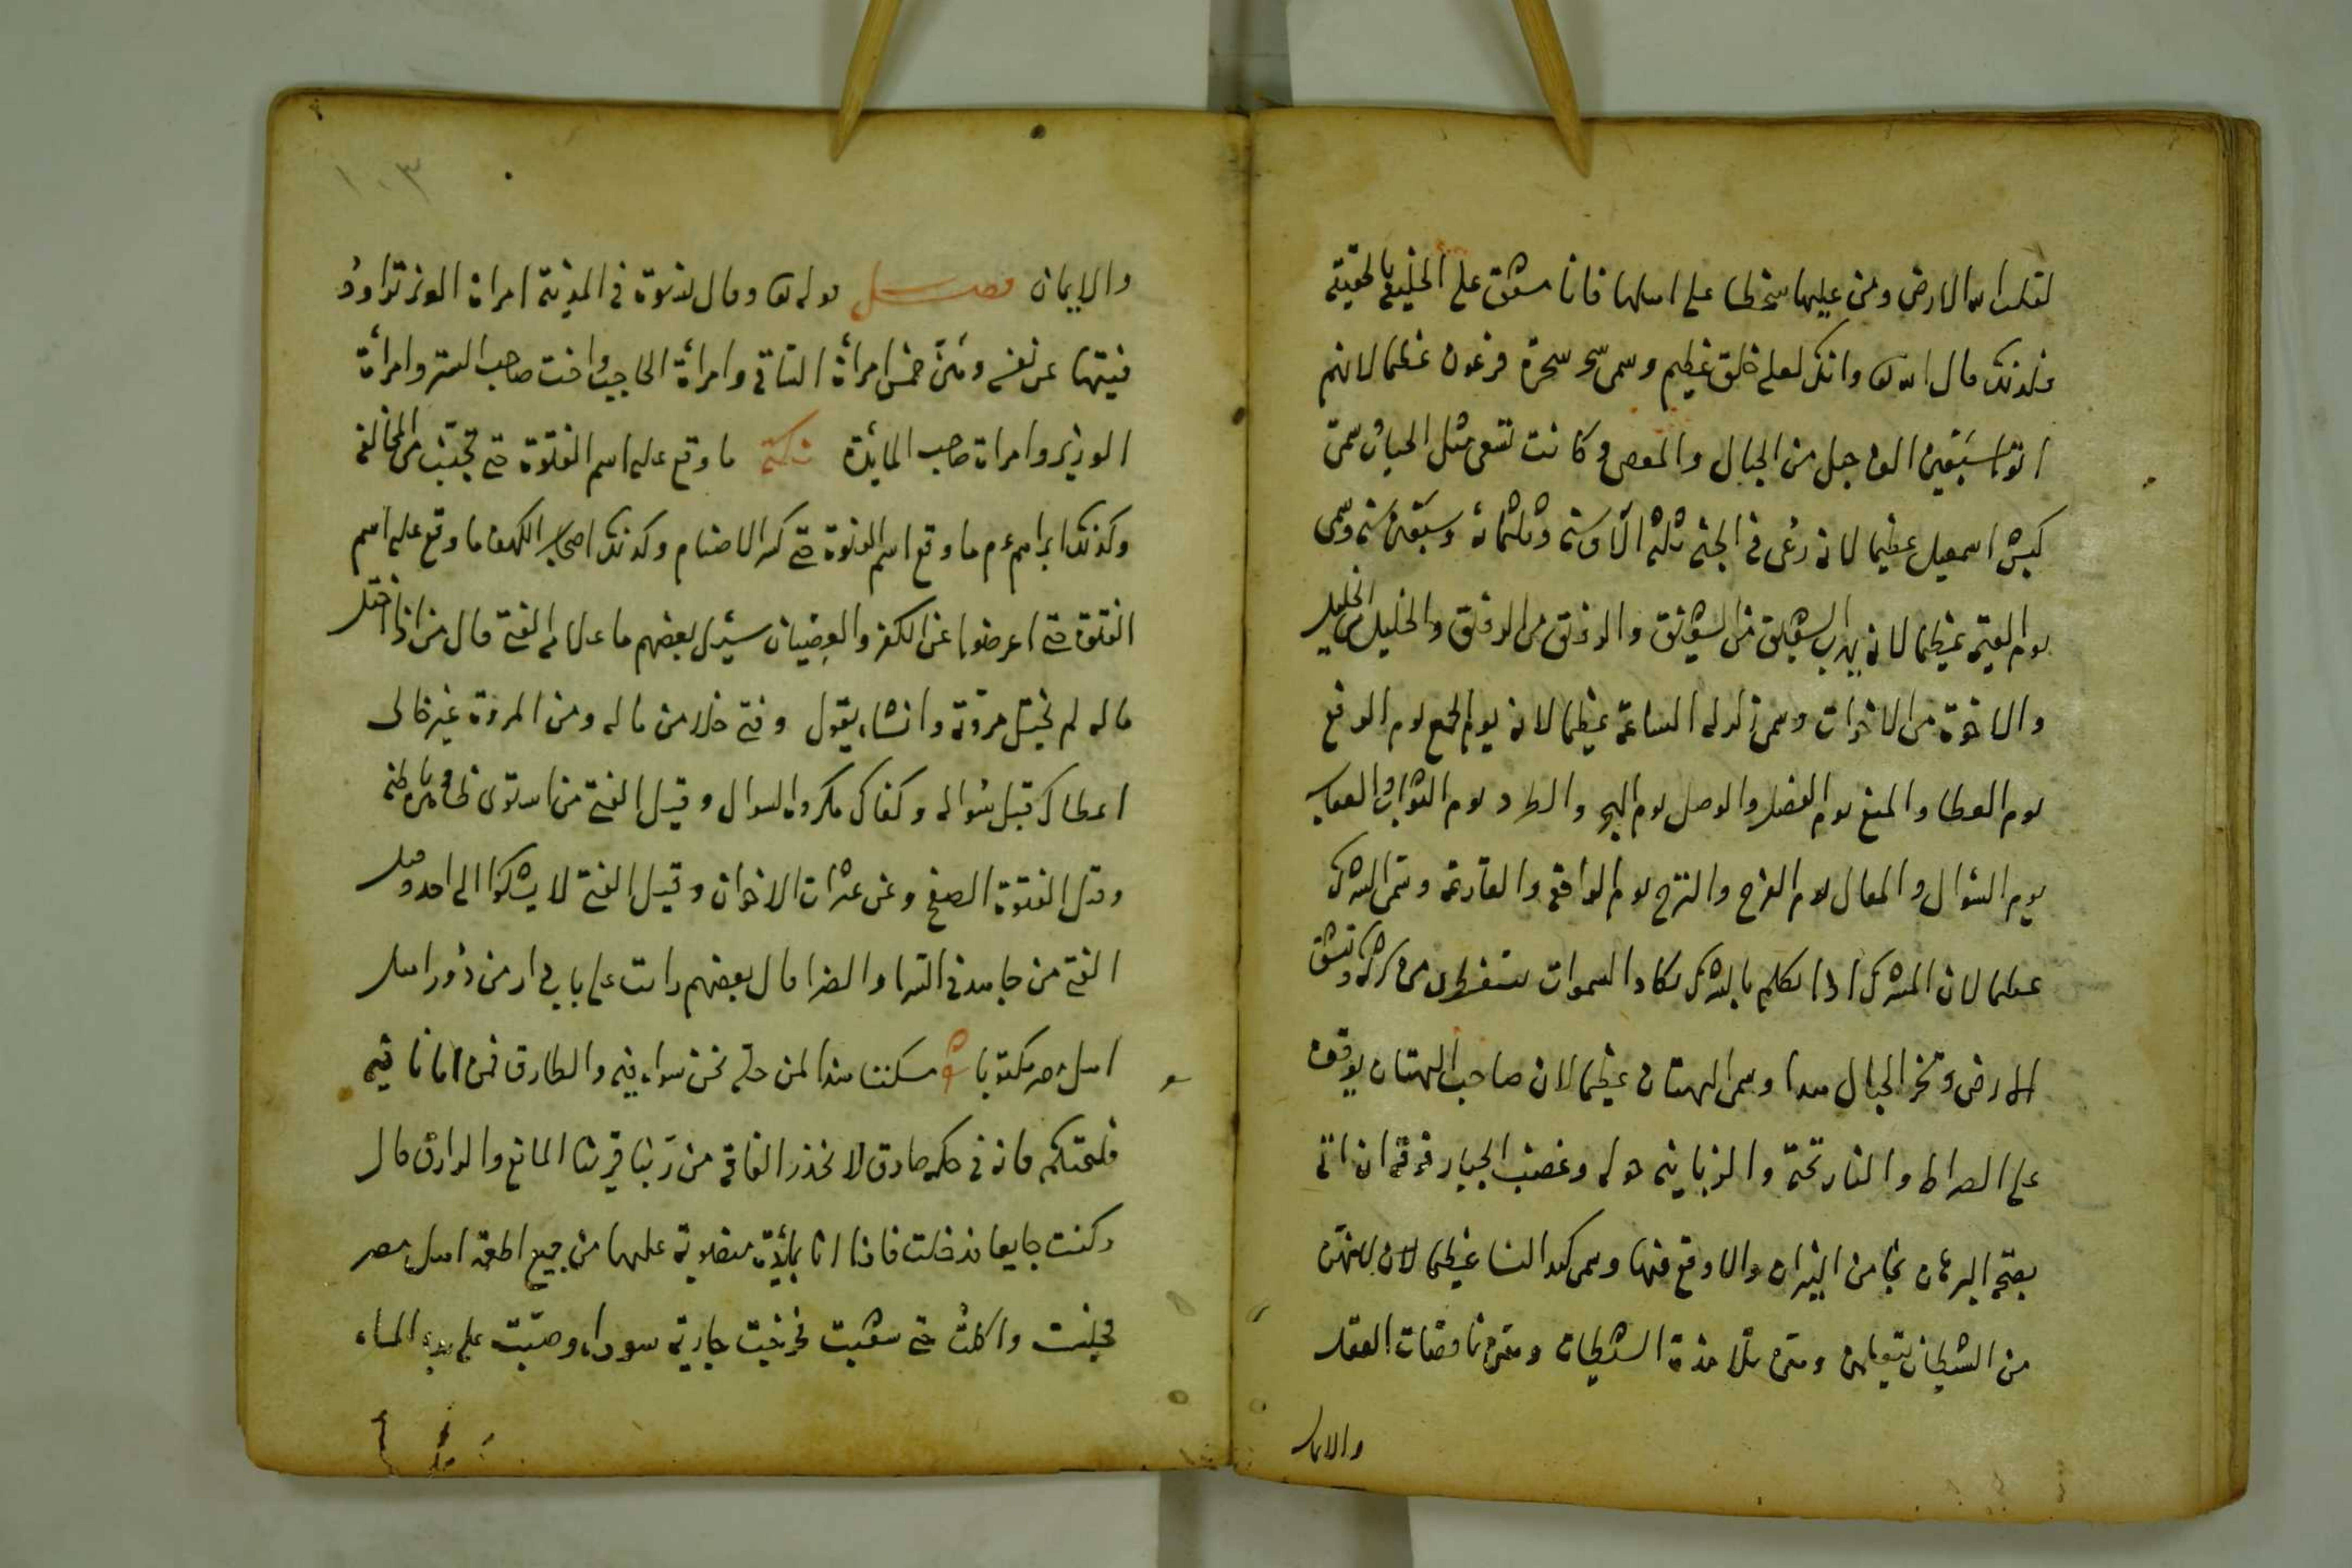 لقلب الله الارض ومن عليها سخطا على اهلها فانا مشفق على الخليقة بالحقيقة
فلذلك قال الله تعا وانك لعلى خلق عظيم وسمى سحر سحرة فرعون عظيما لانهم
القوا سبعين الف حبل من الحبال والعصى وكانت تسعى مثل الحيات وسمى
كبش اسمعيل عظيما لانه رعى فى الجنة ثلثة آلاف سنة وثلثمائة وسبعين سنة وسمى
يوم القيمة عظيما لانه يهرب الشقيق من الشقيق والرفيق من الرفيق والخليل من الخليل
والاخوة من الاخوات وسمى زلزلة الساعة عظيما لانه يوم الجمع يوم الرفع
يوم العطا والمنع يوم الفضل والوصل يوم الهجر والطرد يوم الثواب والعقاب
يوم السؤال والمقال يوم الفرح والترح يوم الواقعة والقارعة وسمى الشرك
عظيما لان المشرك اذا تكلم بالشرك تكاد السموات يتفطرن من شركه وتنشق
الارض وتخر الجبال هدا وسمى البهتان عظيما لان صاحب البهتان يوقف
على الصراط والنار تحته والزبانية حوله وغضب الجبار فوقه ان اتى
بصحة البرهان نجا من النيران والا وقع فيها وسمى كيد النسا عظيما لان كلهن
من الشيطان يتعلمن وهن تلامذة الشيطان وهن ناقصات العقل
والايمان
١٠٣
والايمان فصل قوله تعا وقال نسوة فى المدينة امراة العزيز تراود
فتيها عن نفسه وهن خمس امرأة الساقى وامرأة الحاجب واخت صاحب الستر وامرأة
الوزير وامراة صاحب المايدة نكتة ما وقع عليه اسم الفتوة حتى تجتنب من المخالفة
وكذلك ابراهيم عم ما وقع اسم الفتوة حتى كسر الاصنام وكذلك اصحاب الكهف ما وقع عليه اسم
الفتوة حتى اعرضوا عن الكفر والعصيان سئل بعضهم ما علامة الفتى قال من اذا اختل
ماله لم يختل مروته وانشا يقول وفتى خلا من ماله ومن المروة غير خالى
اعطاك قبل سؤاله وكفاك مكروه السوال وقيل الفتى من استوى ظاهره وباطنه
وقيل الفتوة الصفح وعن عثرات الاخوان وقيل الفتى لا يشكوا الى احد وقيل
الفتى من جاهد فى السرا والضرا قال بعضهم رايت على باب دار من دور اهل
اهل مصر مكتوبا مسكننا هذا لمن حله نحن سواء فيه والطارق فمن اتانا فيه
فليحتكم فانه فى حكمه صادق لا نحذر الفاقة من ربنا قرينا المانع والرازق قال
وكنت جايعا فدخلت فاذا انا بمائدة منصوبة عليها من جميع اطعمة اهل مصر
فجلست واكلت حتى شبعت فخرجت جارية سوداء وصبت على يدى الماء